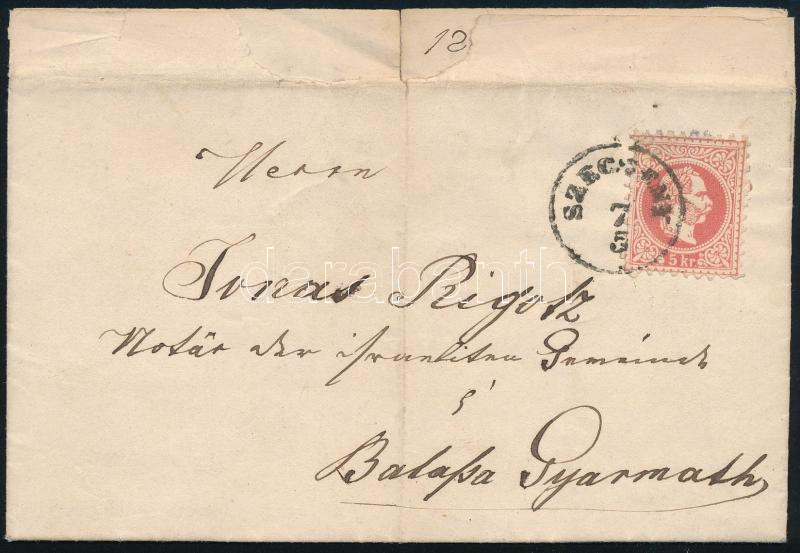 12
Herrn
SZECSENY
5 kr.
Jonas Rigotz
Notär der israeliten Gemeinde
Balaßa Gyarmath
darabanth.com